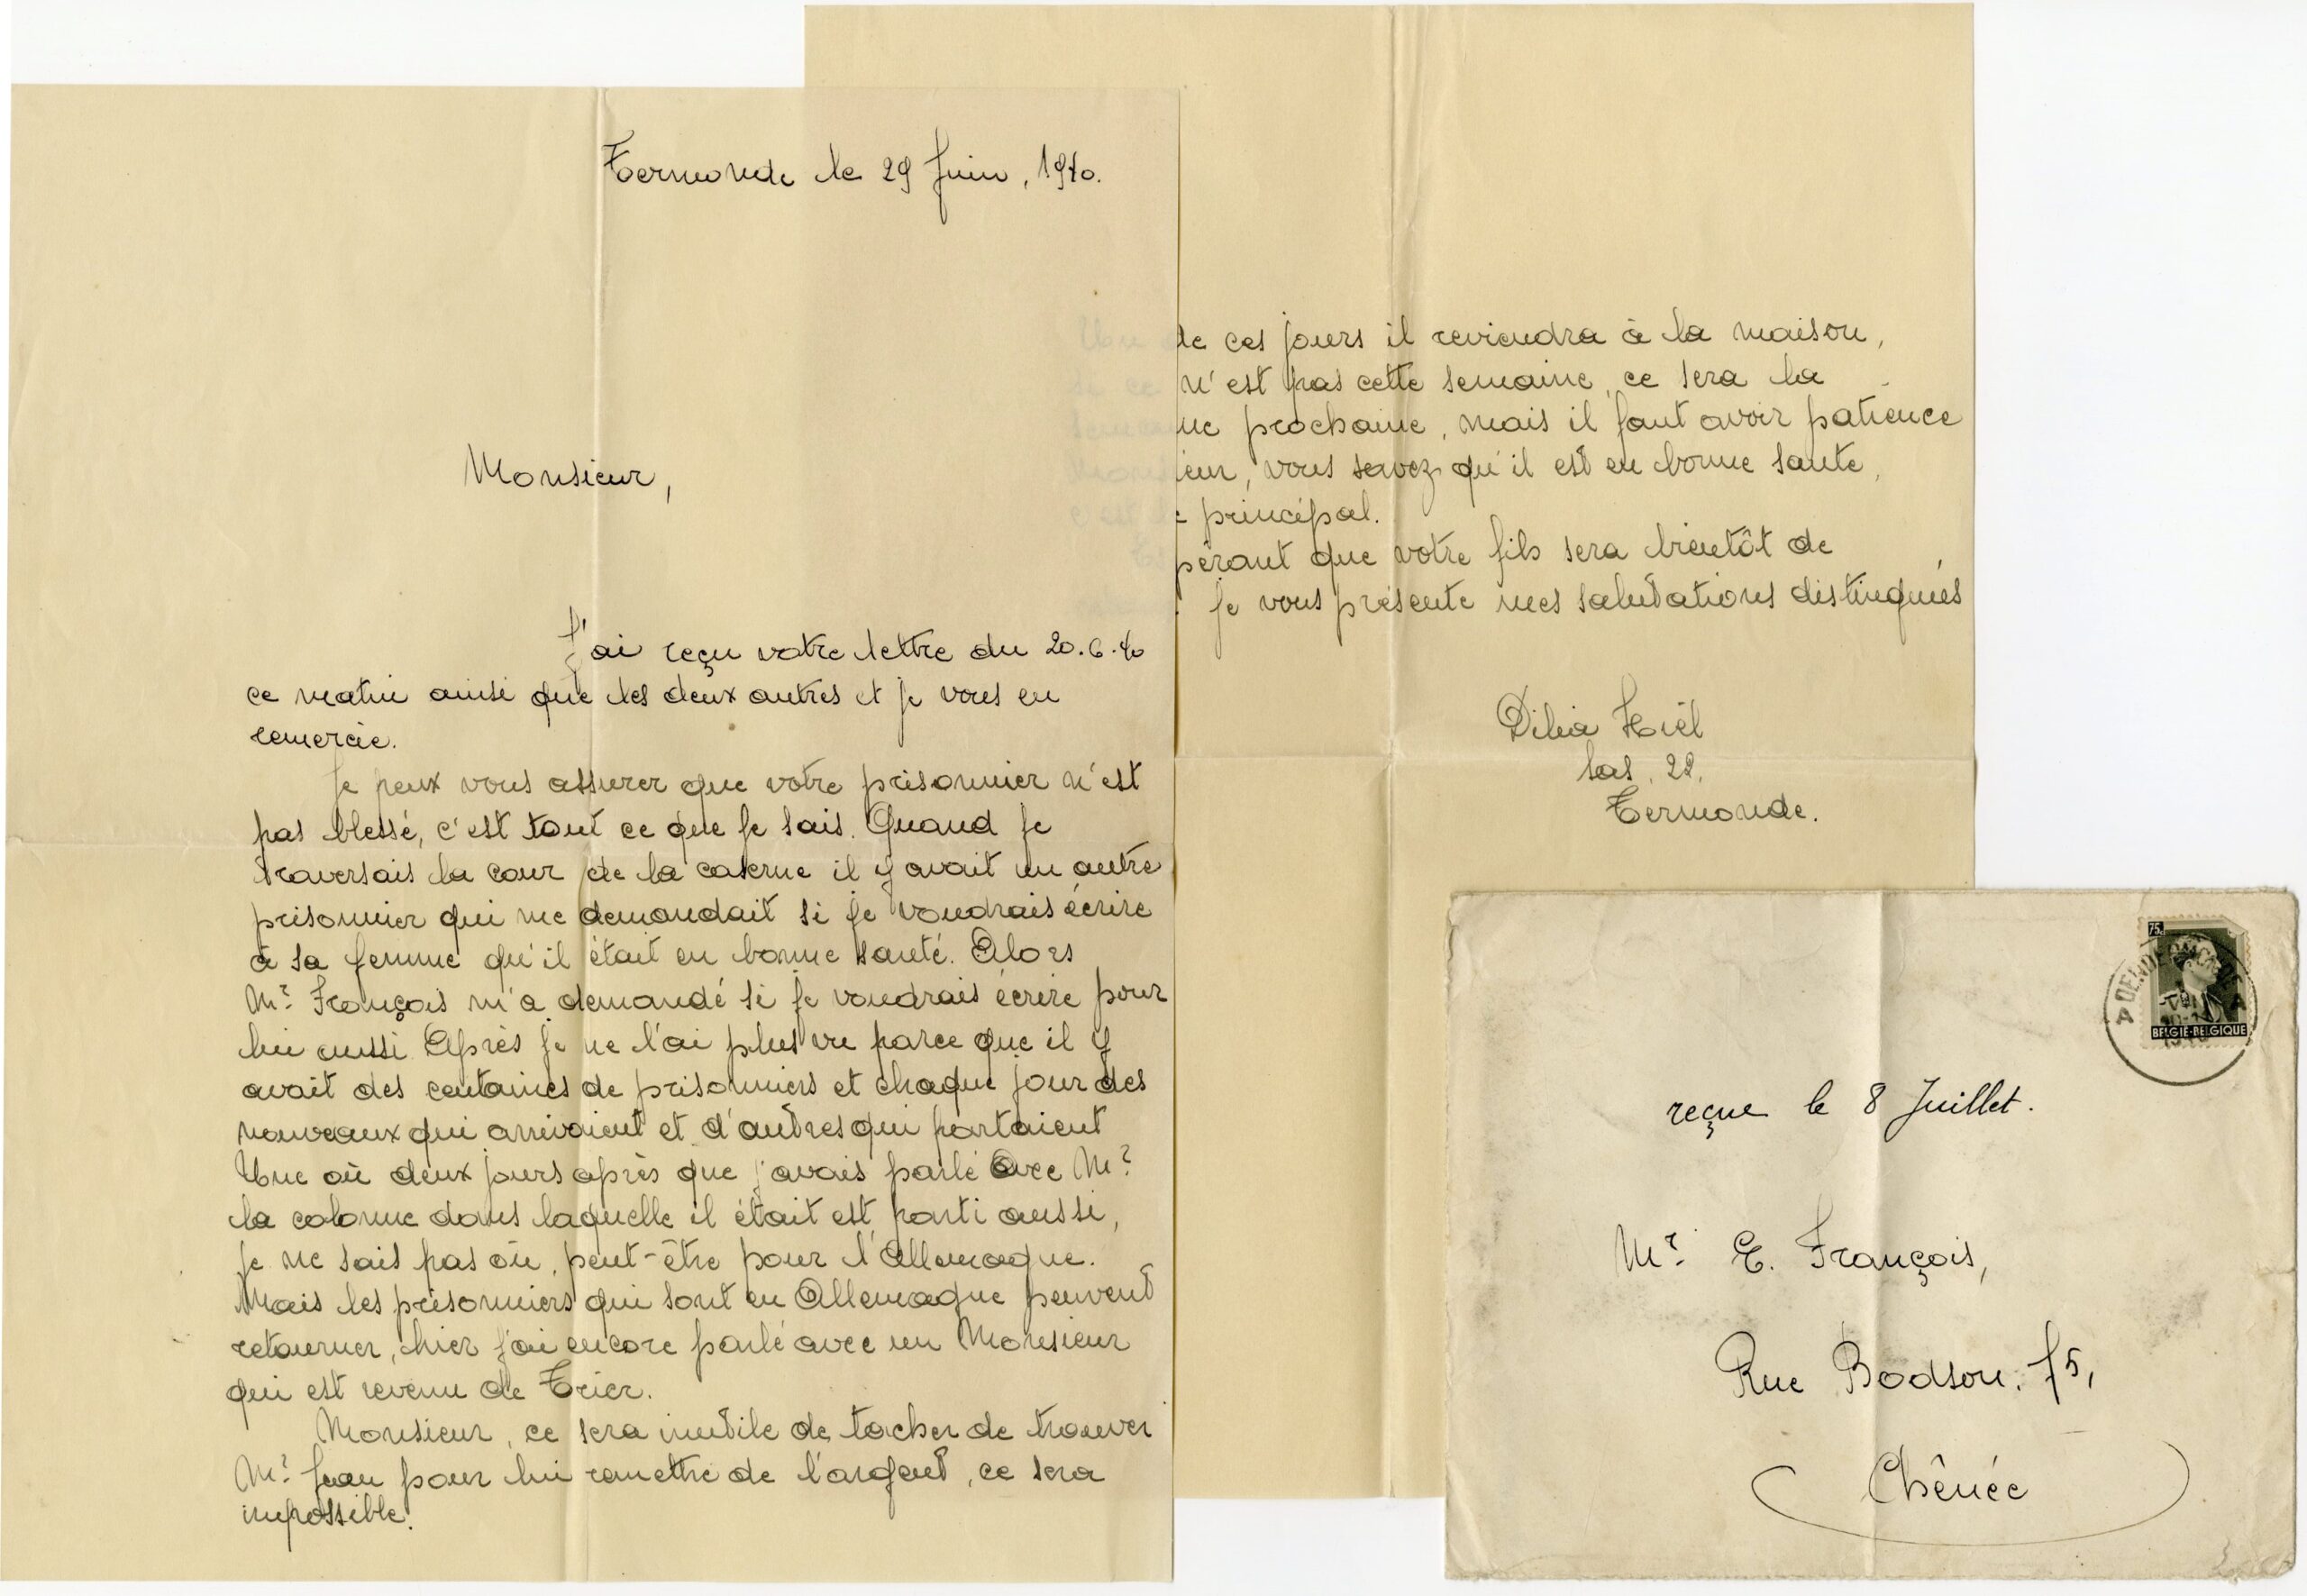 Termonde le 29 Juin, 1940.
Monsieur,
J'ai reçu votre lettre du 20.6.40
ce matin ainsi que les deux autres et je vous en
remercie.
Je peux vous assurer que votre prisonnier n'est
pas blessé, c'est tout ce que je sais. Quand je
traversais la cour de la caserne il y avait un autre
prisonnier qui me demandait si je voudrais écrire
à sa femme qu'il était en bonne santé. Alors
Mr François m'a demandé si je voudrais écrire pour
lui aussi. Après je ne l'ai plus vu parce que il y
avait des centaines de prisonniers et chaque jour des
nouveaux qui arrivaient et d'autres qui partaient
Une où deux jours après que j'avais parlé avec Mr
la colonne dans laquelle il était est parti aussi,
je ne sais pas où, peut-être pour l'Allemagne.
Mais les prisonniers qui sont en Allemagne peuvent
retourner, hier j'ai encore parlé avec un Monsieur
qui est revenu de Trier.
Monsieur, ce sera inutile de tacher de trouver
Mr Jean pour lui remettre de l'argent, ce sera
impossible.
Un de ces jours il reviendra à la maison,
si ce n'est pas cette semaine, ce sera la
semaine prochaine, mais il faut avoir patience
Monsieur, vous savez qu'il est en bonne sante,
c'est le principal.
Espérant que votre fils sera bientôt de
Je vous présente mes salutations distingués
Hiel
Sas, 22,
Termonde.
75c
DENDERMONDE
A A
1940
BELGIE-BELGIQUE
reçue le 8 Juillet.
Mr E. François,
Rue Bodson, 75,
Chênée